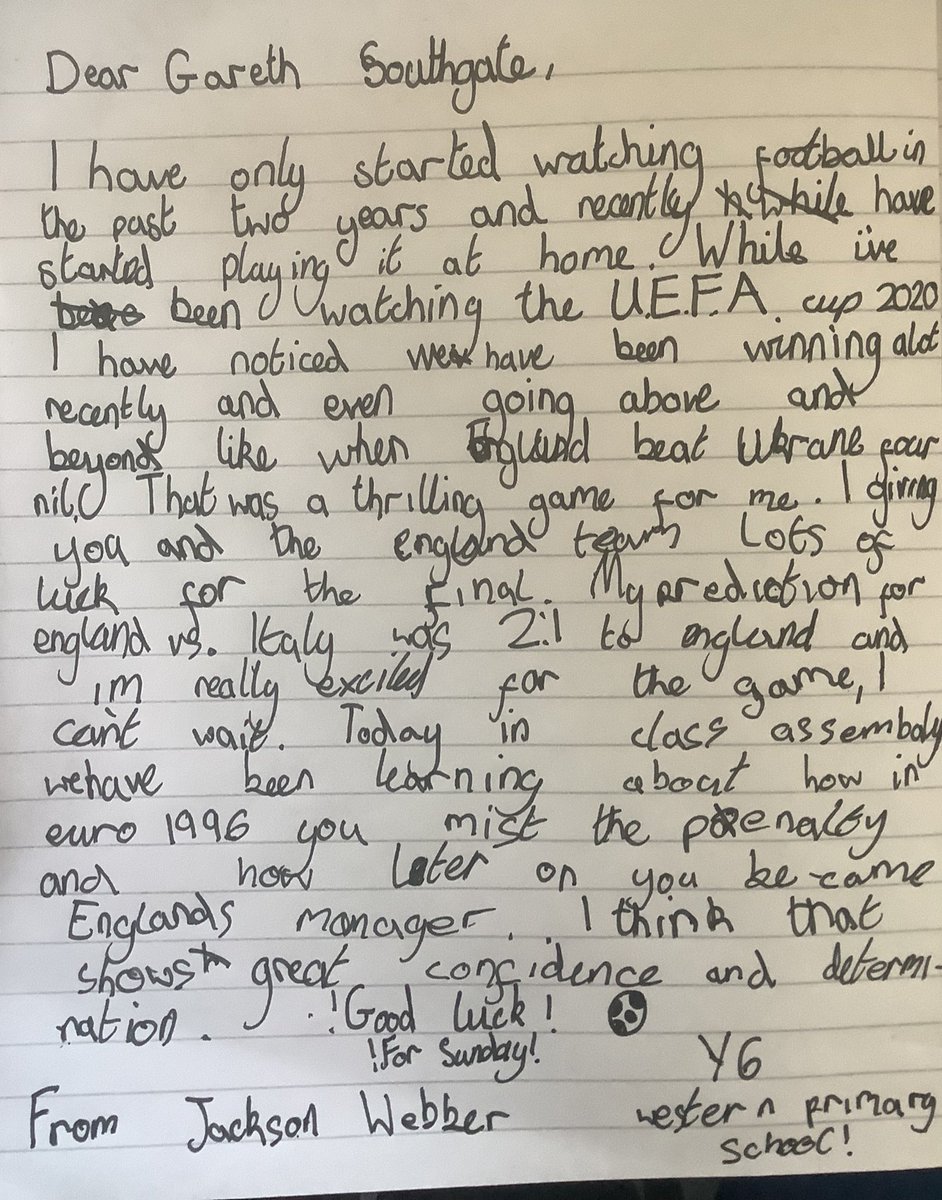 Dear Gareth Southgate,
I have only started watching football in
the past two years and recently have
started playing it at home. While i've
been watching the U.E.F.A. cup 2020
I have noticed we have been winning alot
recently and even going above and
beyond like when England beat Ukrane four
nil. That was a thrilling game for me. I giving
you and the england team Lots of
luck for the final. My prediction for
england vs. Italy was 2:1 to england and
im really excited for the game, I
can't wait. Today in class assembly
we have been learning about how in
euro 1996 you mist the penalty
and how later on you be-came
Englands manager. I think that
shows great confidence and determi-
nation. !Good luck!
!For Sunday!
Y6
From Jackson Webber western primary
school!